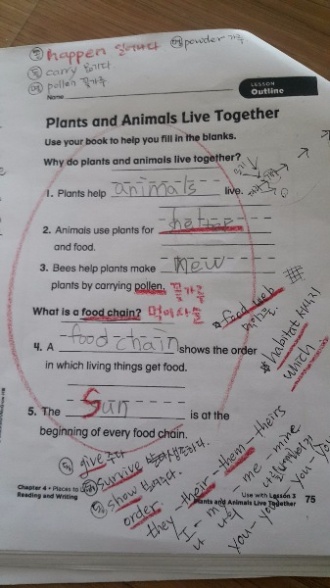 happen 일어나다 powder 가루
carry 옮기다
pollen 꽃가루
LESSON
Outline
Name
Plants and Animals Live Together
Use your book to help you fill in the blanks.
Why do plants and animals live together?
1. Plants help animals live.
2. Animals use plants for
and food.
3. Bees help plants make new
plants by carrying pollen. 꽃가루
What is a food chain? 먹이사슬
food web
habitat 서식지
which
4. A food chain shows the order
in which living things get food.
5. The Sun is at the
beginning of every food chain.
give 주다
survive
show 보여주다.
order.
they - their - them - theirs
I - my - me - mine
you - you - you
Reading and Writing
Use with Lesson 3
Plants and Animals Live Together 75